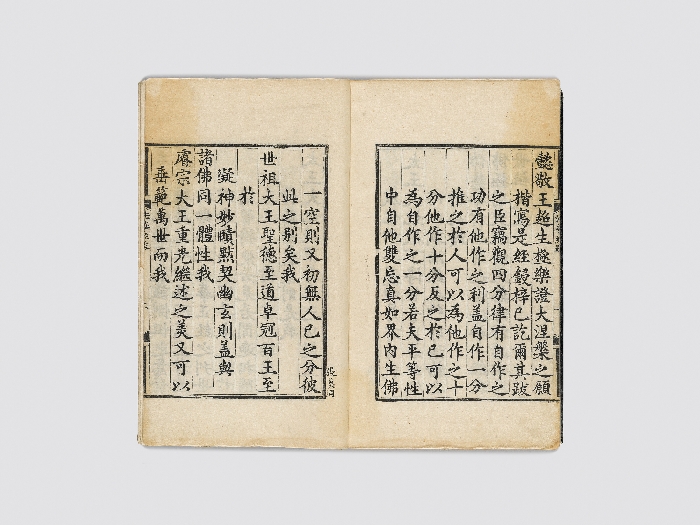 懿敬王超生極樂證大涅槃之願
楷寫是經鋟梓已訖爾其跋
之臣竊觀四分律有自作之
功有他作之利盖自作一分
推之於人可以為他作之十
分他作十分反之於己可以
為自作之一分若夫平等性
中自他雙忘真如界內生佛
一空則又初無人己之分彼
此之别矣我
世祖大王聖德至道卓冠百王至
於
凝神妙賾黙契幽玄則盖與
諸佛同一體性我
睿宗大王重光繼述之美又可以
垂範萬世而我